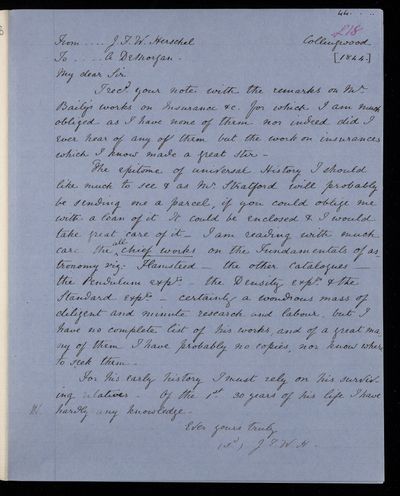 44
£18
From .... J. F. W. Herschel Collingwood
To .... A DeMorgan. [1844.]
My dear Sir.
I recd your note with the remarks on Mr
Baily's works on Insurance &c. for which I am much
obliged as I have none of them nor indeed did I
ever hear of any of them but the work on insurances
which I know made a great stir -
The epitome of universal History I should
like much to see & as Mr Stratford will probably
be sending me a parcel, if you could oblige me
with a loan of it it could be enclosed & I would
take great care of it - I am reading with much
care the all chief works on the Fundamentals of as
tronomy viz. Flamsteed - the other Catalogues -
the Pendulum expts - the Density expts & the
Standard expts - certainly a wondrous mass of
diligent and minute research and labour, but I
have no complete list of his works, and of a great ma
ny of them I have probably no copies, nor know where
to seek them -
For his early history I must rely on his surviv
ing relatives - Of the 1st 30 years of his life I have
hardly any knowledge -
Ever yours truly
J. F. W. H.